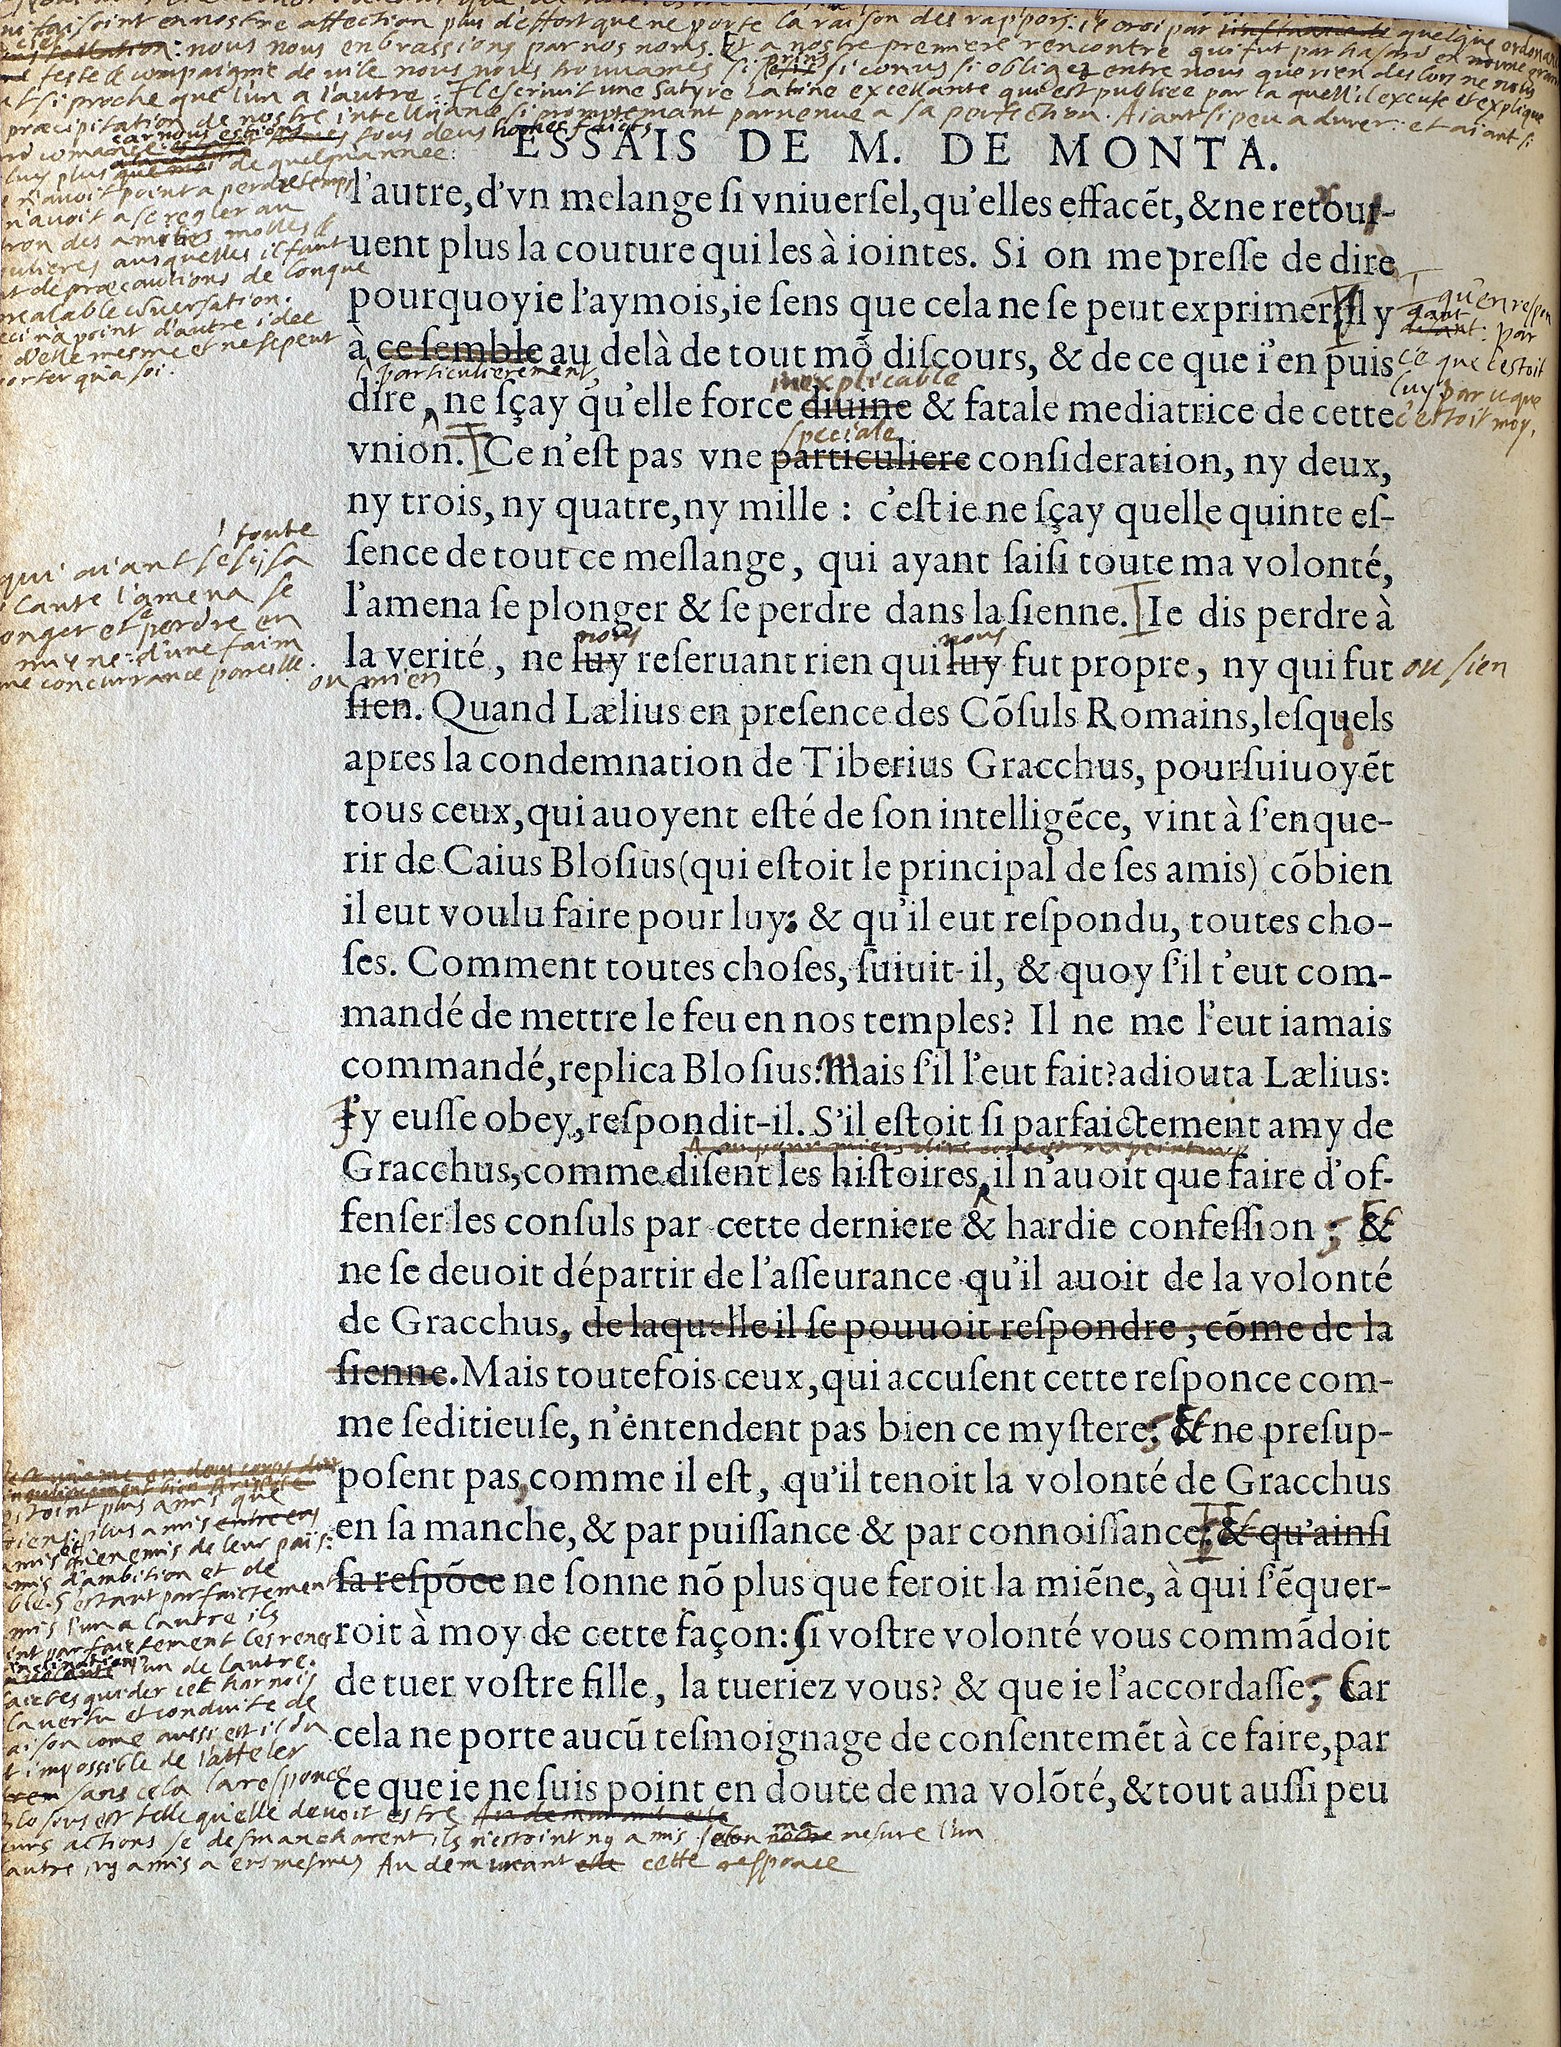 nous nous enbrassions par nos noms. Et a nostre premiere rencontre qui fut par hasard en
feste & compaignie de vile nous nous trouvames si prins si conus si obligez entre nous que rien des lors ne nous
si proche que l'un a l'autre. Il escrivit une Satyre Latine excellante qui est publiee par la quelle il excuse et explique
præcipitation de nostre intelligance si promptemant parvenue a sa perfection. Aiant si peu a durer: et aiant si
car nous estions tous deus homes faicts
ESSAIS DE M. DE MONTA.
luy plus de quelqu'annee:
n'avoit point a perdre temps
n'avoit a se regler au
patron des amities molles &
ausquelles il faut
de præcautions de longue
n'a point d'autre idee
d'elle mesme et ne se peut
qu'a soi.
l'autre, d'vn melange ſi vniuerſel, qu'elles effacēt, & ne retour-
uent plus la couture qui les à iointes. Si on me preſſe de dire
pourquoy ie l'aymois, ie ſens que cela ne ſe peut exprimer, Il y
qu'en respon
dant: par
ce que c'estoit
luy par ce que
c'estoit moy.
à ce ſemble au delà de tout mō diſcours, & de ce que i'en puis
particulierement inexplicable
dire, ne ſçay qu'elle force diuine & fatale mediatrice de cette
speciale
vnion. Ce n'eſt pas vne particuliere conſideration, ny deux,
ny trois, ny quatre, ny mille : c'eſt ie ne ſçay quelle quinte eſ-
ſence de tout ce meſlange, qui ayant ſaiſi toute ma volonté,
l'amena ſe plonger & ſe perdre dans la ſienne. Ie dis perdre à
nous nous
la verité, ne luy reſeruant rien qui luy fut propre, ny qui fut
ou sien
ou mien
toute
qui aiant sesi sa
l'amena se
et se perdre en
d'une faim
concurrance pareille.
ſien. Quand Lælius en preſence des Cōſuls Romains, leſquels
apres la condemnation de Tiberius Gracchus, pourſuiuoyēt
tous ceux, qui auoyent eſté de ſon intelligēce, vint à ſ'enque-
rir de Caius Bloſius (qui eſtoit le principal de ſes amis) cōbien
il eut voulu faire pour luy: & qu'il eut reſpondu, toutes cho-
ſes. Comment toutes choſes, ſuiuit-il, & quoy ſ'il t'eut com-
mandé de mettre le feu en nos temples? Il ne me l'eut iamais
commandé, replica Bloſius: Mais ſ'il l'eut fait? adiouta Lælius:
I'y euſſe obey, reſpondit-il. S'il eſtoit ſi parfaictement amy de
Gracchus, comme diſent les hiſtoires, il n'auoit que faire d'of-
fenſer les conſuls par cette derniere & hardie confeſſion ; &
ne ſe deuoit départir de l'aſſeurance qu'il auoit de la volonté
de Gracchus, de laquelle il ſe pouuoit reſpondre, cōme de la
ſienne. Mais toutefois ceux, qui accuſent cette reſponce com-
me ſeditieuſe, n'entendent pas bien ce myſtere: & ne preſup-
poſent pas, comme il eſt, qu'il tenoit la volonté de Gracchus
en ſa manche, & par puiſſance & par connoiſſance: & qu'ainſi
ſa reſpōce ne ſonne nō plus que feroit la miēne, à qui ſ'ēquer-
roit à moy de cette façon: ſi voſtre volonté vous commādoit
de tuer voſtre fille, la tueriez vous? & que ie l'accordaſſe; Car
cela ne porte aucū teſmoignage de conſentemēt à ce faire, par
ce que ie ne ſuis point en doute de ma volōté, & tout auſſi peu
plus amis que
plus amis
enemis de leur païs:
d'ambition et de
S'estant parfaictement
l'un a l'autre ils
parfaictement les renes
l'un de l'autre.
guider cet harnois
la vertu et conduite de
come aussi est il du
impossible de l'atteler
sans cela la responce
est telle qu'elle devoit estre
actions se desmancharent, ils n'estoint ny amis selon ma mesure l'un
autre, ny amis a eus mesmes Au demurant cette responce